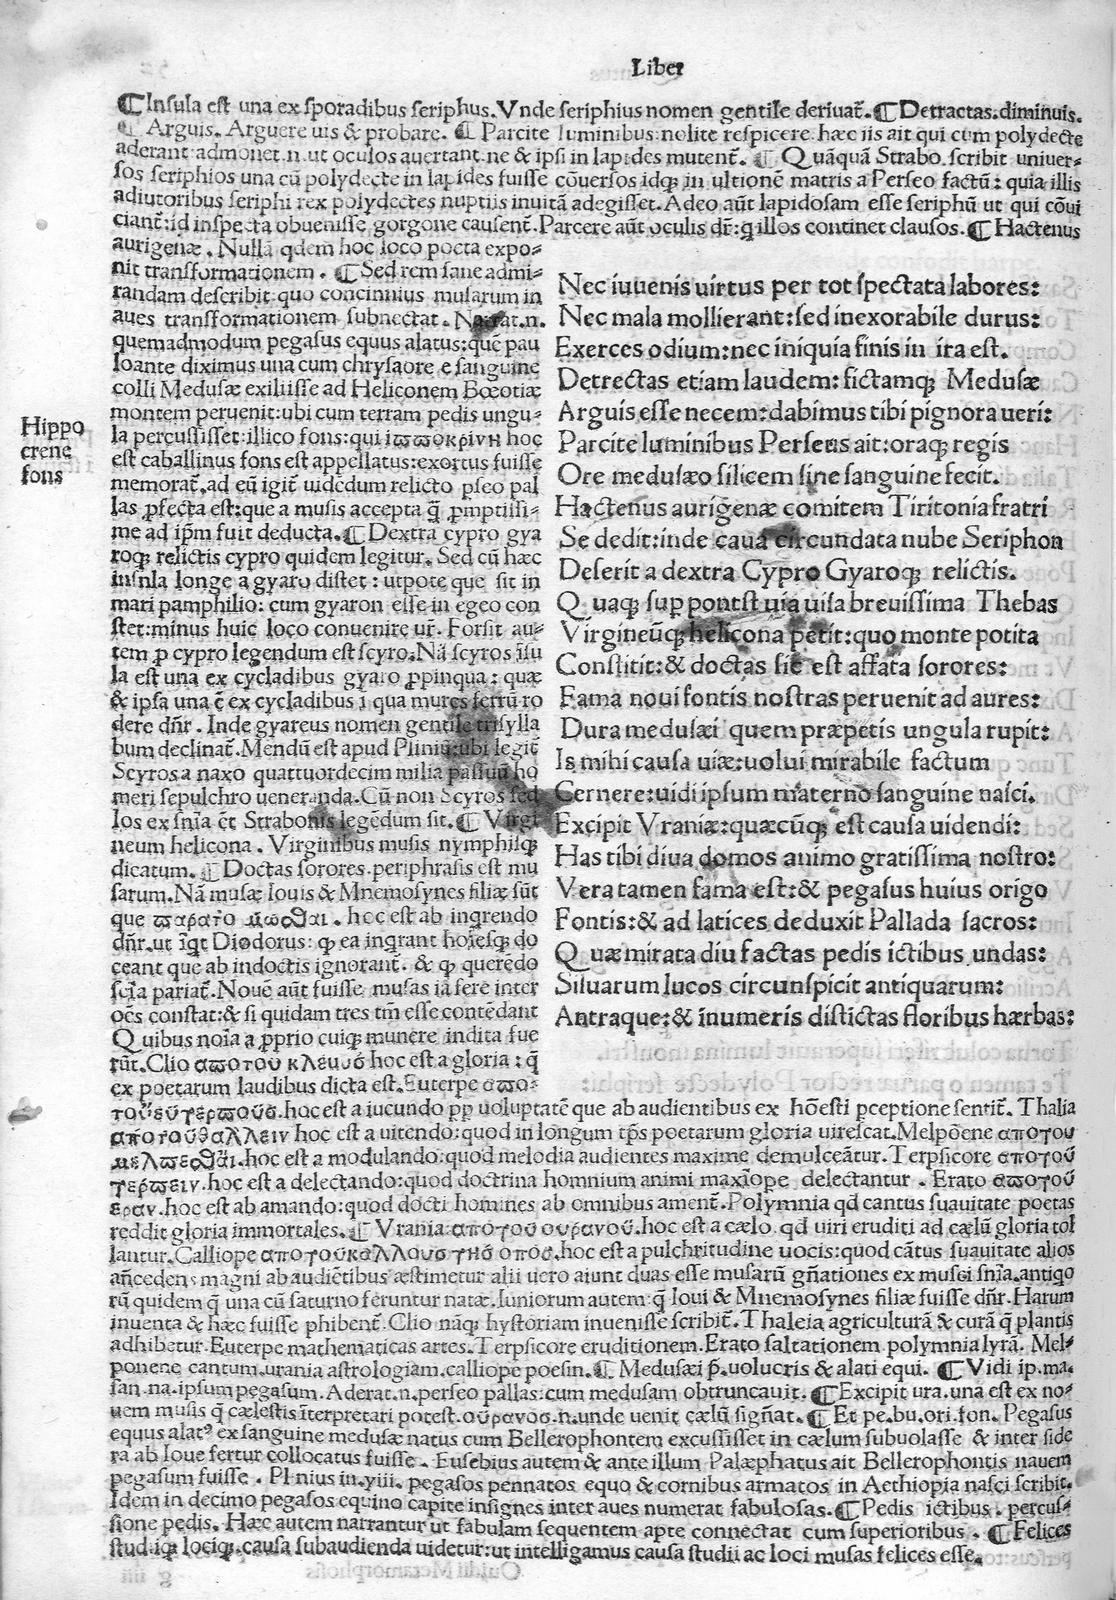 Liber
¶Insula est una ex sporadibus seriphus. Vnde seriphius nomen gentile deriuat̃.¶Detractas.diminuis.
¶ Arguis. Arguere uis & probare. ¶ Parcite luminibus:nolite respicere. hæc iis ait qui cum polydecte
aderant:admonet.n.ut oculos auertant.ne & ipsi in lapides mutent̃. ¶ Quãquã Strabo.scribit uniuer-
sos seriphios una cũ polydecte in lapides fuisse cõuersos idqꝫ in ultionẽ matris a Perseo factũ: quia illis
adiutoribus seriphi rex polydectes nuptiis inuitã adegisset. Adeo aũt lapidosam esse seriphũ ut qui cõui
ciant̃:id inspecta obuenisse gorgone causent̃. Parcere aũt oculis dr̃:q illos continet clausos.¶Hactenus
aurigenæ. Nullã qdem hoc loco poeta expo-
nit transformationem. ¶Sed rem sane admi-
randam describit:quo concinnius musarum in
aues transformationem subnectat. Narrat.n.
quemadmodum pegasus equus alatus:quẽ pau
loante diximus una cum chrysaore e sanguine
colli Medusæ exiliisse ad Heliconem Bœotiæ
montem peruenit:ubi cum terram pedis ungu-
la percussisset:illico fons:qui ιϖϖοκρίνη hoc
est caballinus fons est appellatus:exortus fuisse
memorat̃.ad eũ igit̃ uidẽdum relicto pseo pal
las ꝓfecta est:que a musis accepta q̃ ꝓmptissi-
me ad ip̃m fuit deducta.¶Dextra cypro gya
roqꝫ relictis cypro quidem legitur. Sed cũ hæc
insula longe a gyaro distet: utpote que sit in
mari pamphilio: cum gyaron esse in egeo con
stet:minus huic loco conuenire ur̃. Forsit au-
tem ꝓ cypro legendum est scyro. Nã scyros ĩsu
la est una ex cycladibus gyaro ꝓpinqua: quæ
& ipsa una ẽ ex cycladibus ĩ qua mures ferrũ ro
dere dñr. Inde gyareus nomen gentile trisylla
bum declinat̃. Mendũ est apud Pliniũ:ubi legit̃
Scyros a naxo quattuordecim milia passuũ ho
meri sepulchro ueneranda. Cũ non Scyros sed
Ios ex sñia ẽt Strabonis legẽdum sit.¶ Virgi
neum helicona. Virginibus musis nymphisqꝫ
dicatum.¶Doctas sorores.periphrasis est mu
sarum. Nã musæ Iouis & Mnemosynes filiæ sũt
que ϖαρατο μωσθαι. hoc est ab inqrendo
dñr.ut ĩqt Diodorus: qꝫ ea inqrant hoĩesqꝫ do
ceant que ab indoctis ignorant̃. & qꝫ querẽdo
scĩa pariat̃. Nouẽ aũt fuisse musas iã fere inter
oẽs constat:& si quidam tres tm̃ esse contẽdant
Quibus noĩa a ꝓprio cuiqꝫ munere indita fue
rũt. Clio αϖοτου κλειυσ hoc est a gloria: q̃
ex poetarum laudibus dicta est. Euterpe αϖο-
τοῦεὺτερϖουσ.hoc est a iucundo ꝓꝑ uoluptatẽ que ab audientibus ex hõesti ꝑceptione sentit̃. Thalia
αποτοῦθαλλειν hoc est a uirendo:quod in longum tp̃s poetarum gloria uirescat. Melpõene αποτου
μελϖεσθαι.hoc est a modulando:quod melodia audientes maxime demulceãtur. Terpsicore αποτοῦ
τερϖειν.hoc est a delectando:quod doctrina homnium animi maxĩope delectantur . Erato αϖοτοῦ
εραν.hoc est ab amando:quod docti homines ab omnibus ament̃. Polymnia qd cantus suauitate poetas
reddit gloria immortales. ¶ Vrania αποτοῦ ουρανοῦ.hoc est a cælo.qd uiri eruditi ad cælũ gloria tol
lantur. Calliope αποτουκαλλουσ τησ οποσ.hoc est a pulchritudine uocis:quod cãtus suauitate alios
añcedens magni ab audiẽtibus æstimetur alii uero aiunt duas esse musarũ gñationes ex musei sñia.antiqo
rũ quidem q̃ una cũ saturno feruntur natæ. Iuniorum autem:q̃ Ioui & Mnemosynes filiæ fuisse dñr. Harum
inuenta & hæc fuisse phibent̃. Clio nãqꝫ hystoriam inuenisse scribit̃. Thaleia agriculturã & curã q̃ plantis
adhibetur. Euterpe mathematicas artes. Terpsicore eruditionem. Erato saltationem polymnia lyrã. Mel-
ponene cantum.urania astrologiam.calliope poesin.¶ Medusæi p̃.uolucris & alati equi. ¶Vidi ip.ma.
san.na.ipsum pegasum. Aderat.n.perseo pallas:cum medusam obtruncauit. ¶Excipit ura.una est ex no-
uem musis q̃ cælestis ĩterpretari potest.ουρανοσ.n.unde uenit cælũ signat̃.¶Et pe.hu.ori.fon. Pegasus
equus alatꝰ ex sanguine medusæ natus cum Bellerophontem excussisset in cælum subuolasse & inter side
ra ab Ioue fertur collocatus fuisse. Eusebius autem & ante illum Palæphatus ait Bellerophontis nauem
pegasum fuisse. Plinius in.viii. pegasos pennatos equo & cornibus armatos in Aethiopia nasci scribit.
Idem in decimo pegasos equino capite insignes inter aues numerat fabulosas.¶Pedis ictibus.percus-
sione pedis. Hæc autem narrantur ut fabulam sequentem apte connectat cum superioribus. ¶Felices
stud.iqꝫ lociqꝫ.causa subaudienda uidetur:ut intelligamus causa studii ac loci musas felices esse.
Hippo
crene
fons
Nec iuuenis uirtus per tot spectata labores:
Nec mala mollierant:sed inexorabile durus:
Exerces odium:nec iniquia finis in ira est.
Detrectas etiam laudem: fictamqꝫ Medusæ
Arguis esse necem:dabimus tibi pignora ueri:
Parcite luminibus Perseus ait:oraqꝫ regis
Ore medusæo silicem sine sanguine fecit.
Hactenus aurigenæ comitem Tiritonia fratri
Se dedit:inde caua circundata nube Seriphon
Deserit a dextra Cypro Gyaroqꝫ relictis.
Quaqꝫ sup pontũ uia uisa breuissima Thebas
Virgineũqꝫ helicona petit:quo monte potita
Constitit:& doctas sic est affata sorores:
Fama noui fontis nostras peruenit ad aures:
Dura medusæi quem præpetis ungula rupit:
Is mihi causa uiæ:uolui mirabile factum
Cernere:uidi ipsum materno sanguine nasci.
Excipit Vraniæ:quæcũqꝫ est causa uidendi:
Has tibi diua domos animo gratissima nostro:
Vera tamen fama est:& pegasus huius origo
Fontis:& ad latices deduxit Pallada sacros:
Quæ mirata diu factas pedis ictibus undas:
Siluarum lucos circunspicit antiquarum:
Antraque:& ĩnumeris distictas floribus hærbas: